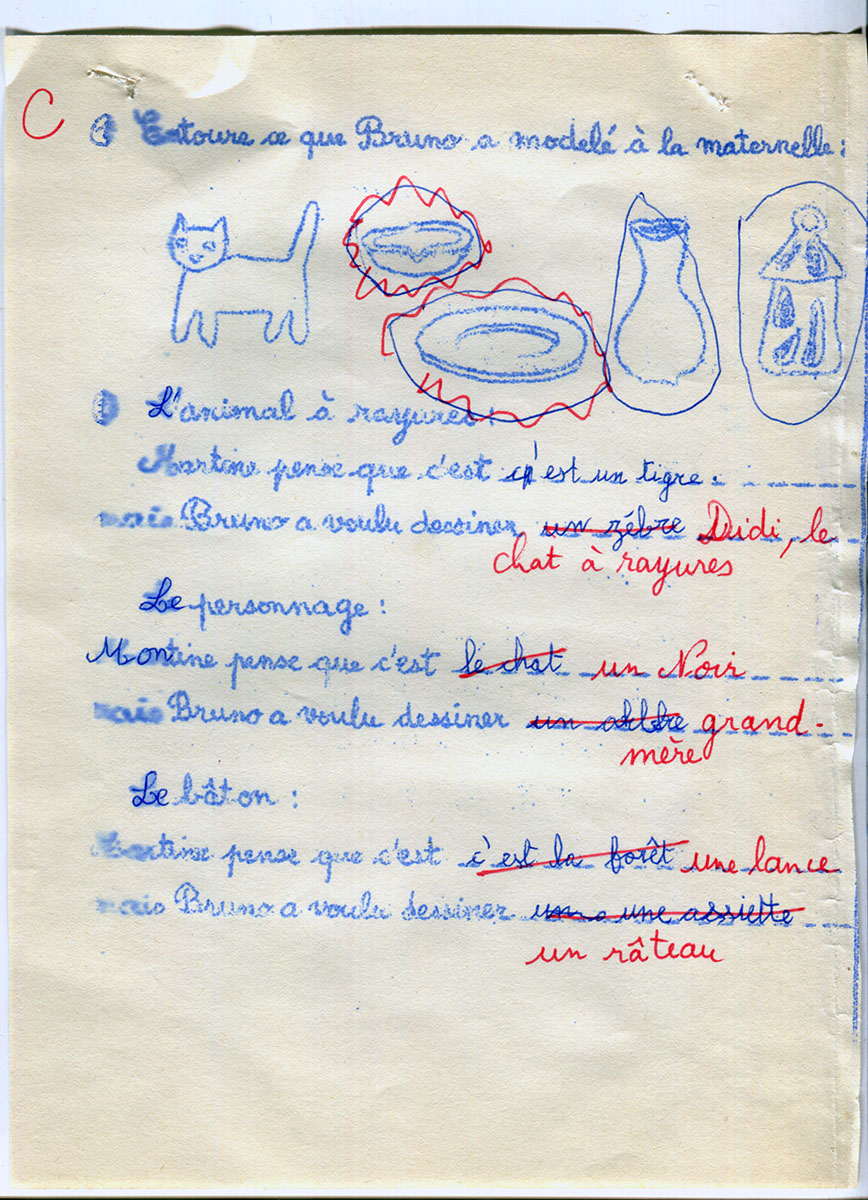 C
Entoure ce que Bruno a modelé à la maternelle :
L'animal à rayures :
Martine pense que c'est c'est un tigre.
mais Bruno a voulu dessiner un zébre Didi, le
chat à rayures
Le personnage :
Montine pense que c'est le chat un Noir
mais Bruno a voulu dessiner un grand-
mère
Le bâton :
Martine pense que c'est c'est la forêt une lance
mais Bruno a voulu dessiner une assiette
un râteau